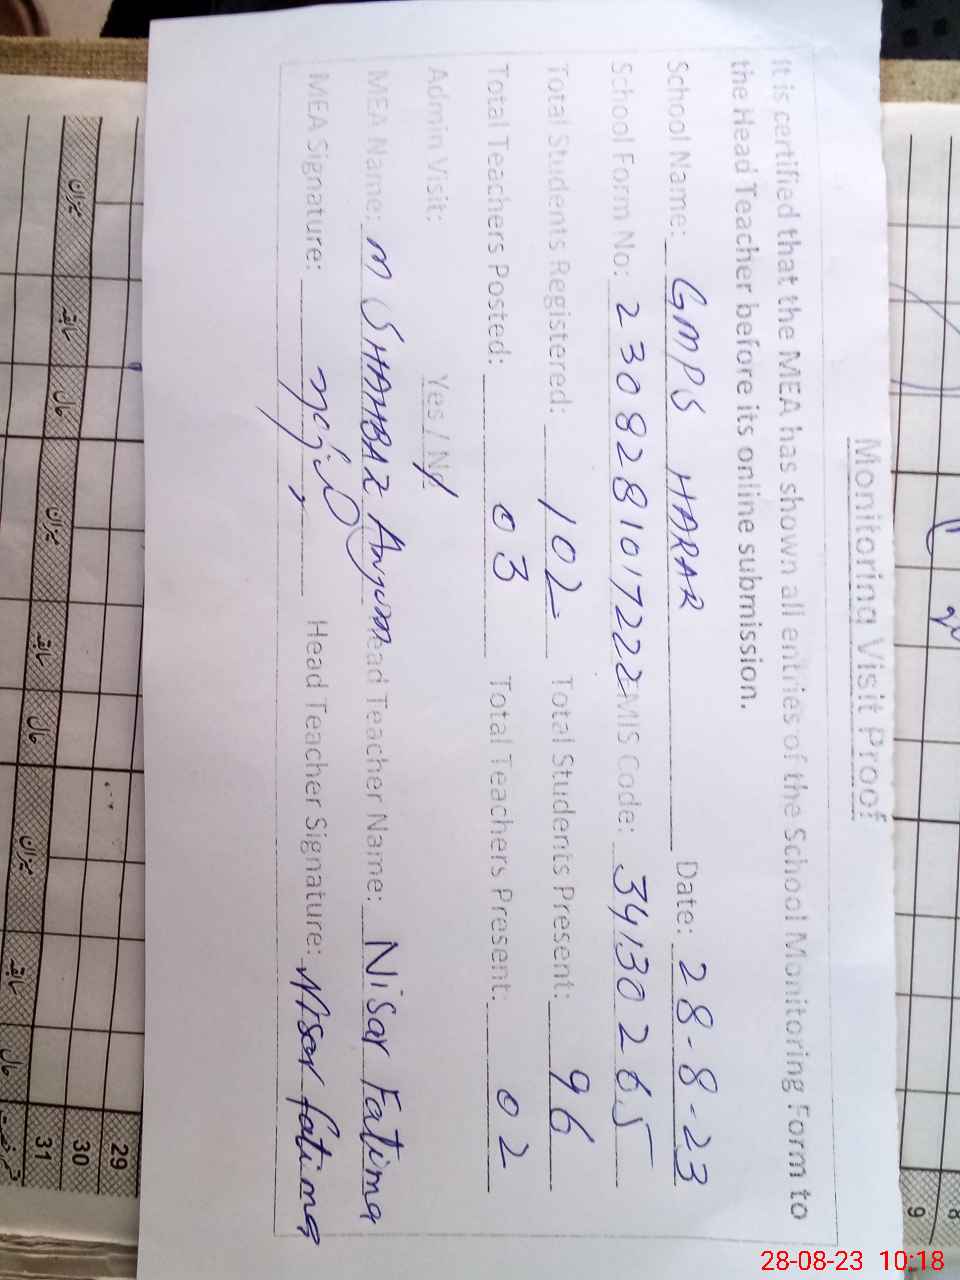 Monitoring Visit Proof
It is certified that the MEA has shown all entries of the School Monitoring Form to
the Head Teacher before its online submission.
School Name: GMPS HARAR Date: 28-8-23
School Form No: 2308281017222 EMIS Code: 34130265
Total Students Registered: 102 Total Students Present: 96
Total Teachers Posted: 03 Total Teachers Present: 02
Admin Visit: Yes / No
MEA Name: M SHAHBAZ Anjum Head Teacher Name: Nisar Fatima
MEA Signature: Head Teacher Signature: Nisar fatima
میزان سابقہ حال میزان سابقہ حال میزان سابقہ حال
29
30
31
8
9
28-08-23 10:18